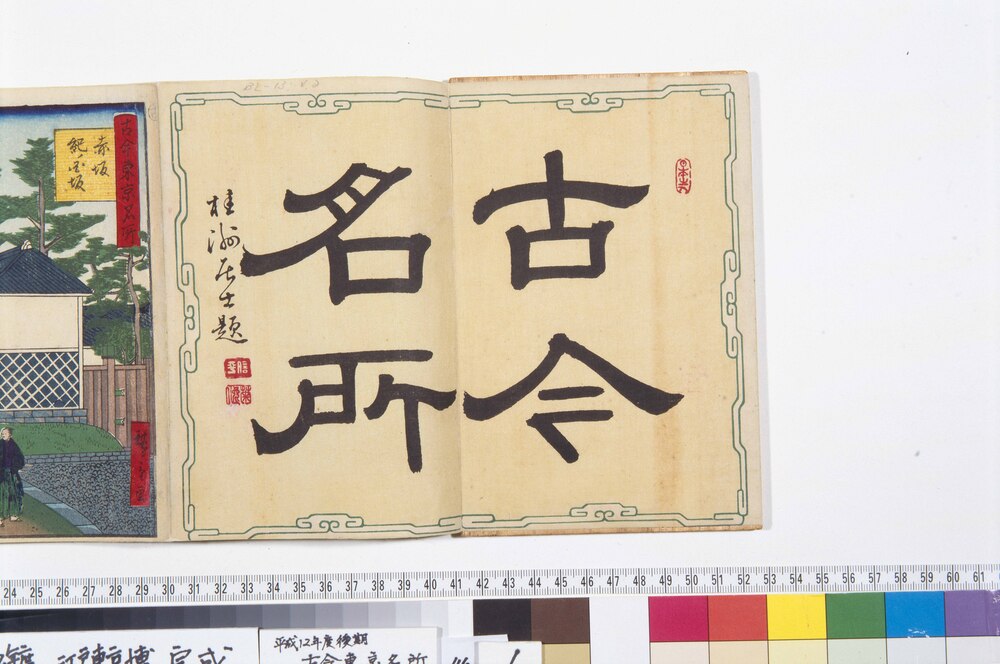 古今
名所
桂洲居士題
古今東京名所
赤坂
紀ノ国坂
BL-13
24 25 26 27 28 29 30 31 32 33 34 35 36 37 38 39 40 41 42 43 44 45 46 47 48 49 50 51 52 53 54 55 56 57 58 59 60 61
江戸東京博
平成12年度後期
古今東京名所